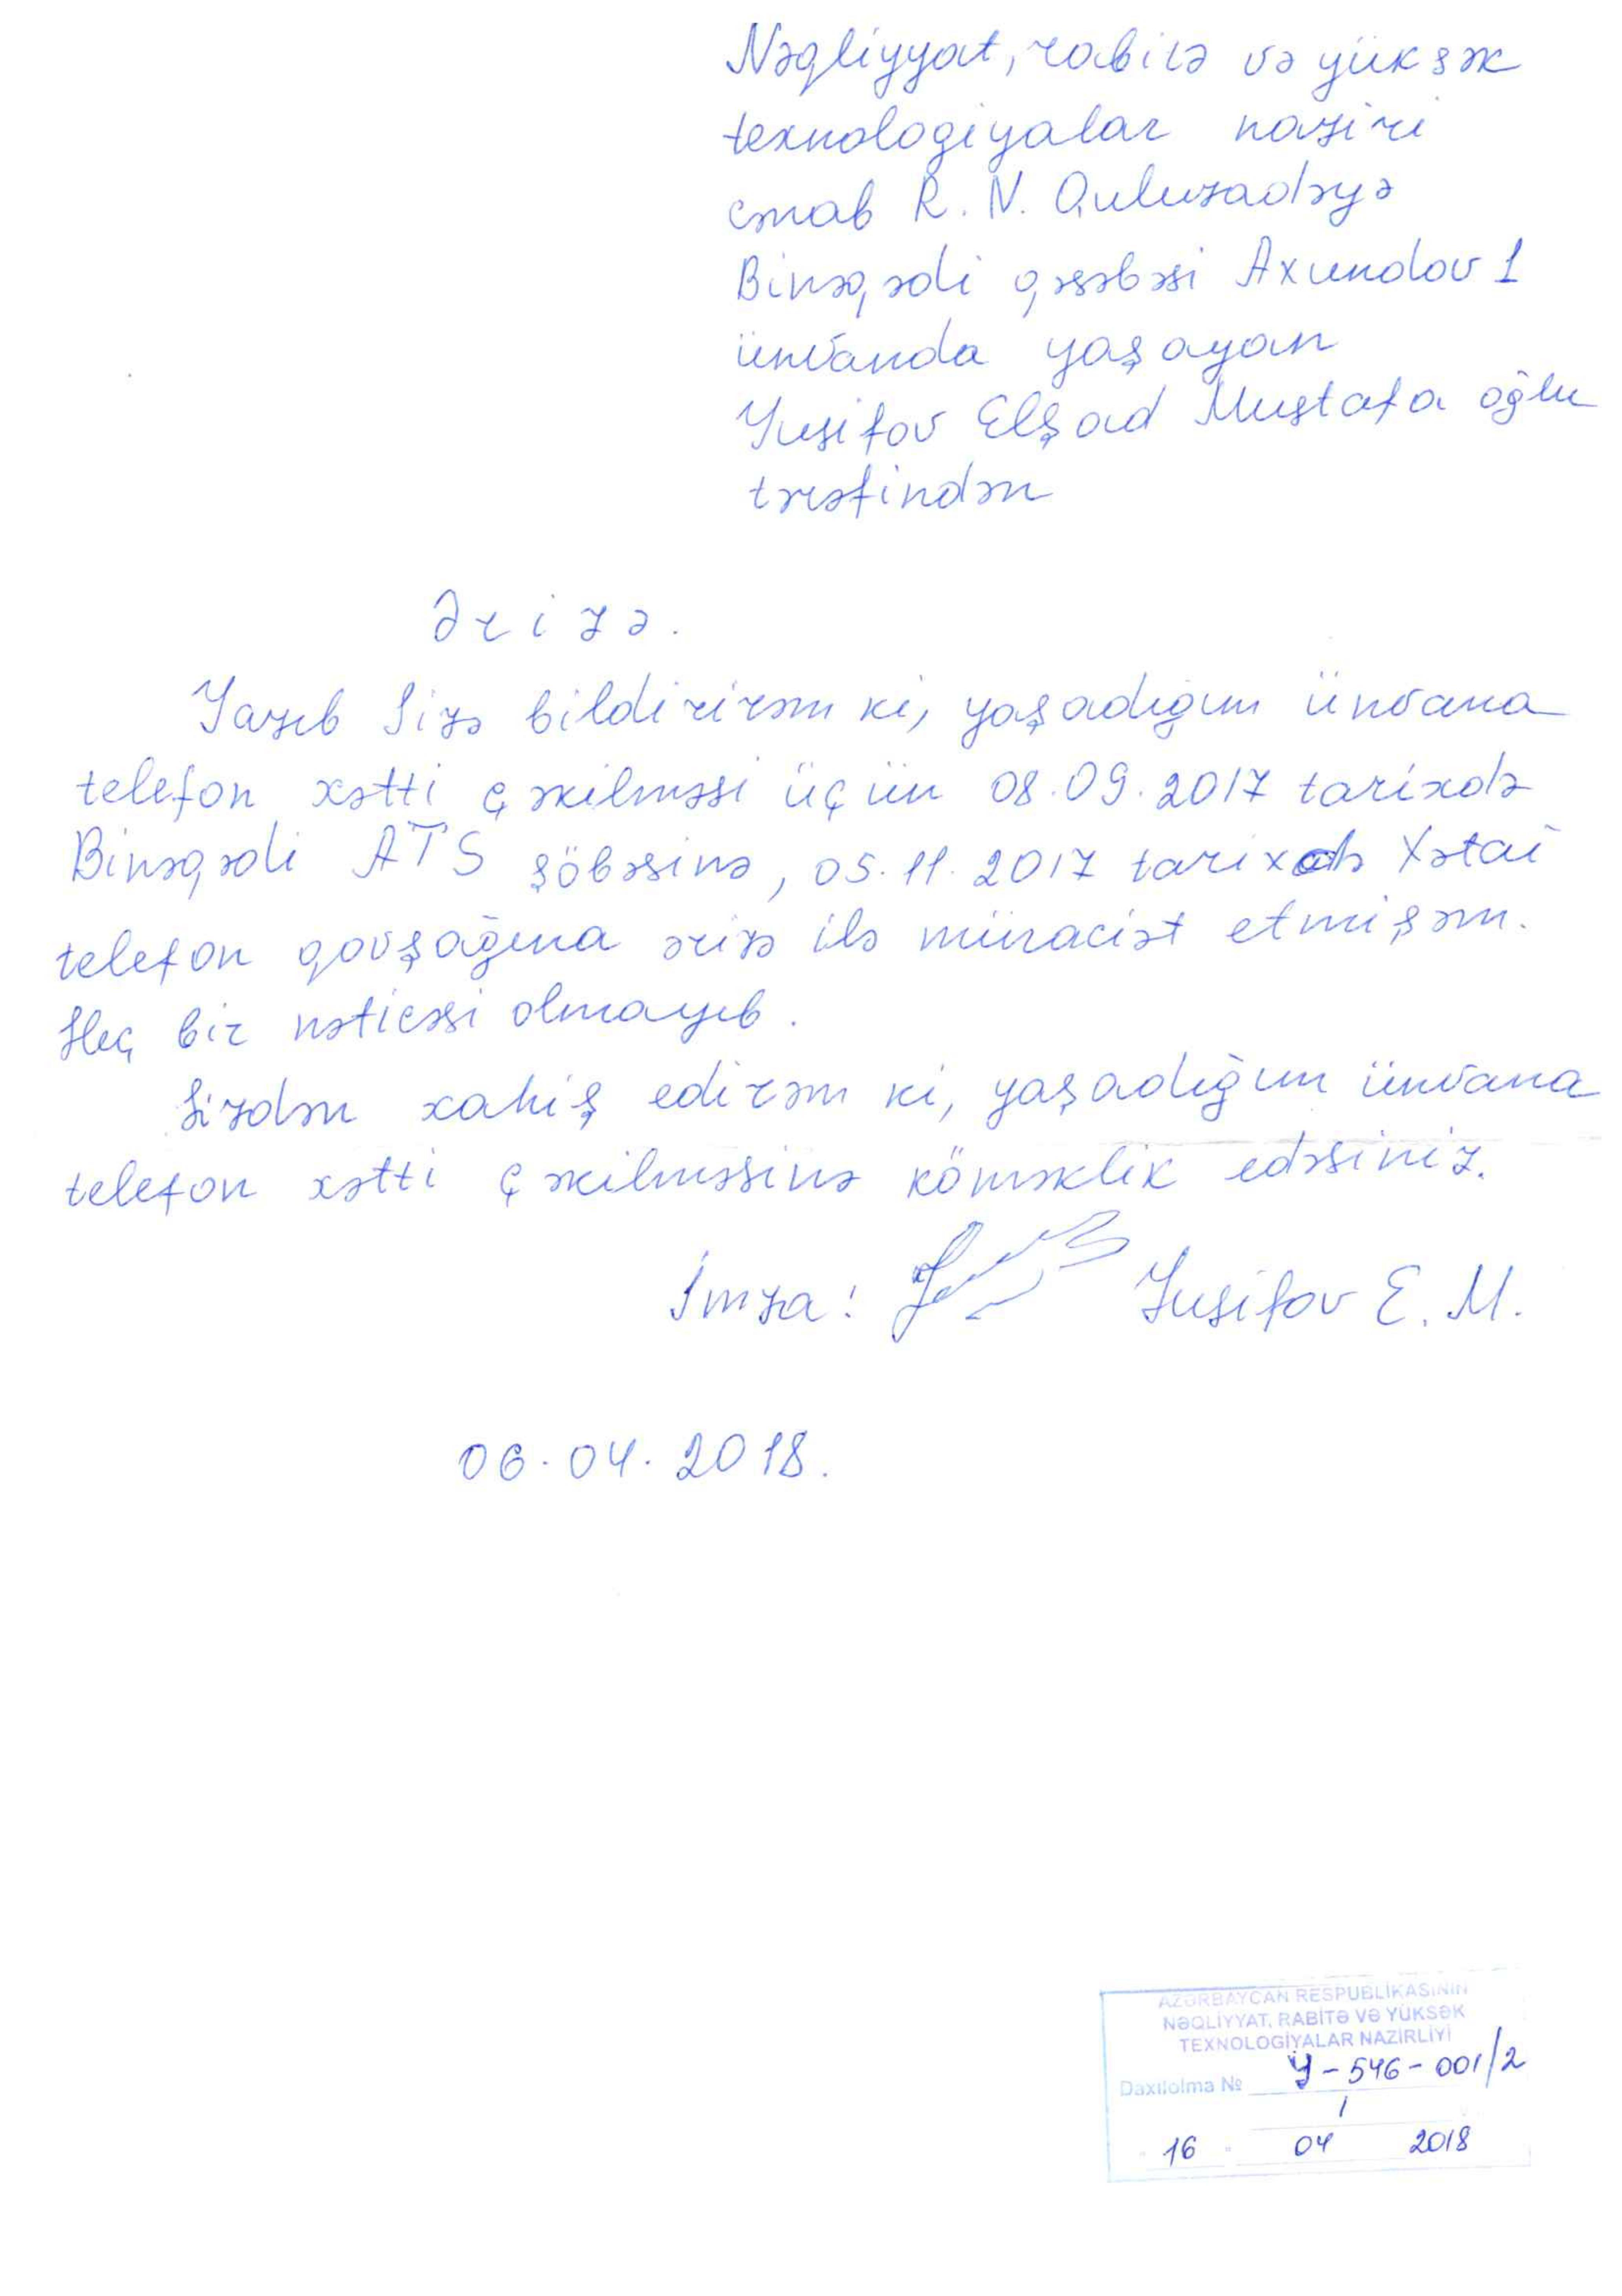 Nəqliyyat, rabitə və yüksək
texnologiyalar naziri
cənab R. N. Quluzadəyə
Binəqədi qəsəbəsi Axundov 1
ünvanda yaşayan
Yusifov Elşad Mustafa oğlu
tərəfindən
Ərizə.
Yazıb Sizə bildirirəm ki, yaşadığım ünvana
telefon xətti çəkilməsi üçün 08.09.2017 tarixdə
Binəqədi ATS şöbəsinə, 05.11.2017 tarixdə Xətai
telefon qovşağına ərizə ilə müraciət etmişəm.
Heç bir nəticəsi olmayıb.
Sizdən xahiş edirəm ki, yaşadığım ünvana
telefon xətti çəkilməsinə köməklik edəsiniz.
İmza: Yusifov E. M.
06.04.2018.
AZƏRBAYCAN RESPUBLİKASININ
NƏQLİYYAT, RABİTƏ VƏ YÜKSƏK
TEXNOLOGİYALAR NAZİRLİYİ
Daxilolma № Y-546-001/2
/
16 04 2018